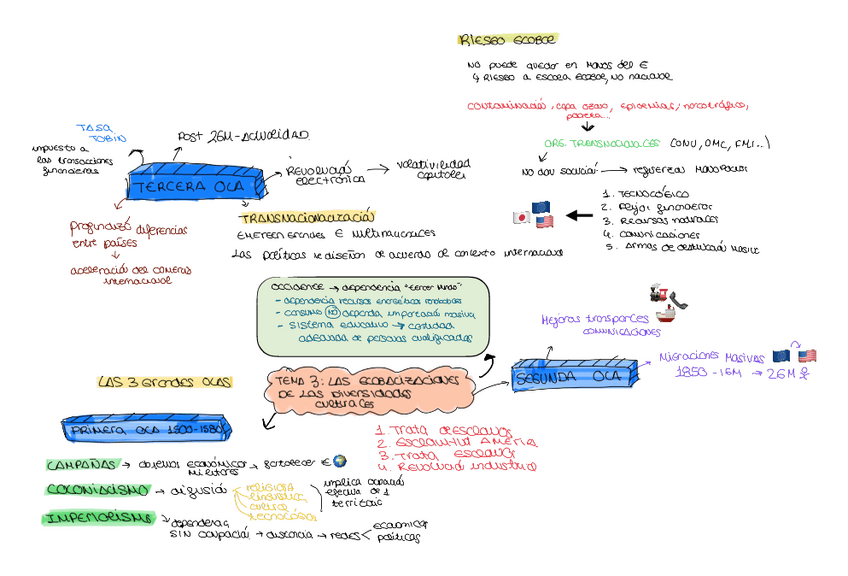 RIESGO GLOBAL
NO puede quedar en manos del E
↳ RIESGO a escala GLOBAL, NO nacional
CONTAMINACIÓ, capa ozono, epidemias, narcotráfico,
pobreza...
ORG. TRANSNACIONALES (ONU, OMC, FMI..)
NO dan solució: → refuerzan monopolios
1. TECNOLÓGICO
2. Flujos financieros
3. Recursos naturales
4. comunicaciones
5. Armas de destrucció masiva
TASA
TOBIN
impuesto a
las transacciones
financieras
POST 2GM-ACTUALIDAD
TERCERA OLA
REVOLUCIÓ
electrónica
→ volatividad
capitales
profundizó diferencias
entre países
aceleració del comercio
internacional
TRANSNACIONALIZACIÓ
EMERGEN grandes E multinacionales
Las políticas se diseñan de acuerdo al contexto internacional
OCCIDENTE → dependencia "tercer mundo"
- dependencia recursos energéticos
- consumo NO dependa importació masiva
- sistema educativo → cantidad
adecuada de personas cualificadas
Mejoras transportes
COMUNICACIONES
LAS 3 Grandes OLAS
TEMA 3: LAS GLOBALIZACIONES
DE LAS DIVERSIDADES
CULTURALES
SEGUNDA OLA
MIGRACIONES MASIVAS
1850 - IGM → 26M
PRIMERA OLA 1500-1580
1. Trata de esclavos
2. Esclavitut AMÉRICA
3. Trata esclavos
4. Revolució industrial
CAMPAÑAS → objetivos económicos → fortalecer E
militares
COLONIALISMO → difusió
religiosa
lingüística
cultural
tecnológica
implica ocupació
efectiva de 1
territorio
IMPERIALISMO
dependencia,
SIN ocupació → distancia → redes <
económicas
políticas